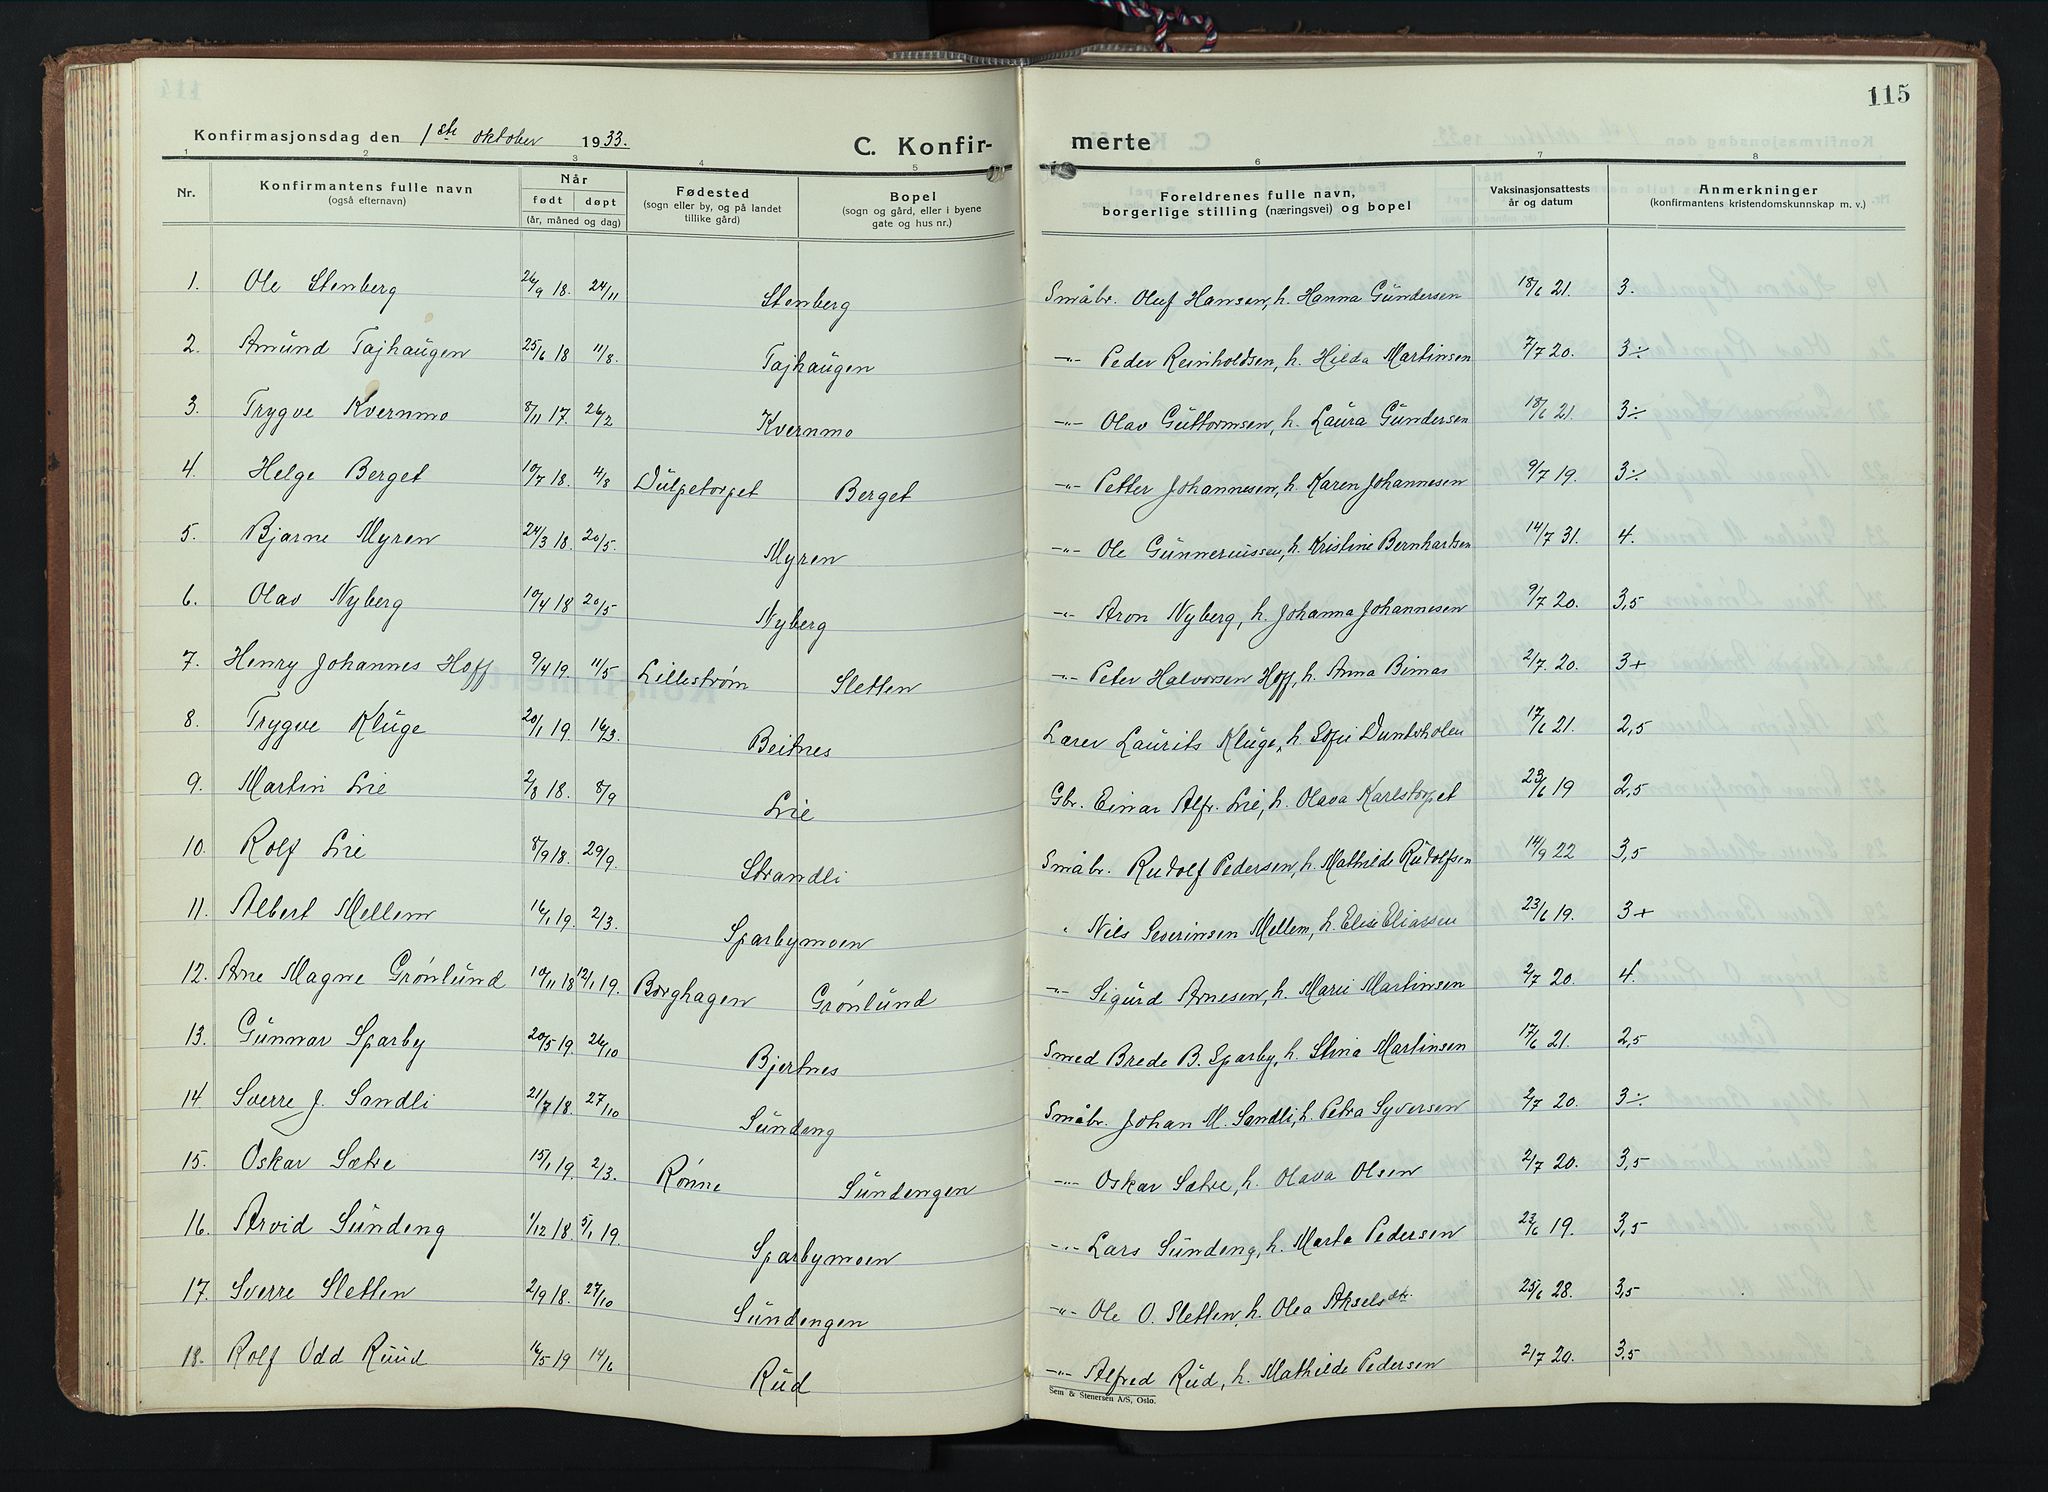 115
Konfirmasjonsdag den 1ste oktober 1933.
C. Konfir- merte
1 2 3 4 5 6 7 8
Nr. Konfirmantens fulle navn (også efternavn) Når født døpt (år, måned og dag) Fødested (sogn eller by, og på landet tillike gård) Bopel (sogn og gård, eller i byene gate og hus nr.) Foreldrenes fulle navn, borgerlige stilling (næringsvei) og bopel Vaksinasjonsattests år og datum Anmerkninger (konfirmantens kristendomskunnskap m. v.)
1. Ole Stenberg 26/9 18. 24/11 Stenberg Småbr. Oluf Hansen, h. Hanna Gundersen 18/6 21. 3.
2. Amund Tajhaugen 25/6 18 11/8. Tajhaugen -"- Peder Reinholdsen, h. Hilda Martinsen 7/7 20. 3÷
3. Trygve Kvernmo 8/11 17. 26/2 Kvernmo -"- Olav Guttormsen, h. Laura Gundersen 18/6 21. 3÷
4. Helge Berget 10/7 18. 4/8 Dulpetorpet Berget -"- Petter Johannesen, h. Karen Johannesen 9/7 19. 3÷
5. Bjarne Myren 24/3 18. 20/5. Myren -"- Ole Gunneriussen, h. Kristine Bernhartsen 14/7 31. 4.
6. Olav Nyberg 10/4 18 20/5 Nyberg -"- Aron Nyberg, h. Johanna Johannesen 9/7 20. 3,5
7. Henry Johannes Hoff 9/4 19. 11/5 Lillestrøm Sletten -"- Peter Halvorsen Hoff, h. Anna Bimas 2/7. 20. 3+
8. Trygve Kluge 20/1 19. 16/3. Beitnes Lærer Laurits Kluge, h. Sofie Dunderholen 17/6 21. 2,5
9. Martin Lie 2/8 18. 8/9 Lie Gbr. Einar Alfr. Lie, h. Olava Karlstorpet 23/6 19 2,5
10. Rolf Lie 8/9 18. 29/9. Strandli Småbr. Rudolf Pedersen, h. Mathilde Rudolfsen 14/9 22 3,5
11. Albert Mellem 16/1 19. 2/3. Sparbymoen " Nils Severinsen Mellem, h. Elise Eliassen 23/6 19. 3+
12. Arne Magne Grønlund 10/11 18 12/1 19. Borghagen Grønlund -"- Sigurd Arnesen, h. Marie Martinsen 2/7 20. 4.
13. Gunnar Sparby 20/5 19. 26/10 Bjertnes Smed Brede B. Sparby, h. Stina Martinsen 17/6 21. 2,5
14. Sverre J. Sandli 21/7 18. 27/10 Sundeng Småbr. Johan M. Sandli, h. Petra Syversen 2/7 20. 3÷
15. Oskar Sætre 15/1 19. 2/3. Rønne Sundengen -"- Oskar Sætre, h. Olava Olsen 2/7 20. 3,5
16. Arvid Sundeng 1/12 18. 5/1 19. Sparbymoen -"- Lars Sundeng, h. Marta Pedersen 23/6 19. 3,5
17. Sverre Sletten 2/9 18. 27/10 Sundengen -"- Ole O. Sletten, h. Olea Akselsdtr. 25/6 28. 3,5
18. Rolf Odd Ruud 16/5 19 14/6 Rud -"- Alfred Rud, h. Mathilde Pedersen 2/7 20. 3.5
Sem & Stenersen A/S, Oslo.